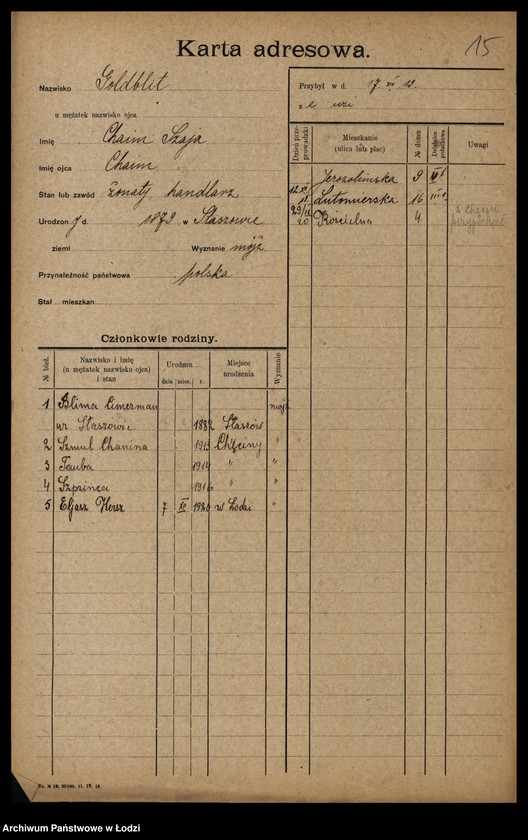 Karta adresowa.
15
Nazwisko Goldblit
u mężatek nazwisko ojca
Imię Chaim Szaja
Imię ojca Chaim
Stan lub zawód żonaty, handlarz
Urodzon d. 1879 w Staszowie
ziemi Wyznanie mojż
Przynależność państwowa polska
Stał mieszkan:
Przybył w d. 17
z
Dzień przeprowadzki
Mieszkanie (ulica lub plac)
№ domu
Uwagi
Jerozolimska 9
Lutomierska 16 III
Kościelna 4
Członkowie rodziny.
№ bież.
Nazwisko i imię
(u mężatek nazwisko ojca)
i stan
Urodzon
dnia mies. r.
Miejsce
urodzenia
Wyznanie
1 Blima Cimerman mojż
ur Staszowie 1882 Staszów
2 Szmul Chanina 1913 Chęciny "
3 Tauba 1914 " "
4 Szprinca 1916 " "
5 Eljasz Hersz 7 IV 1920 w Łodzi "
Archiwum Państwowe w Łodzi